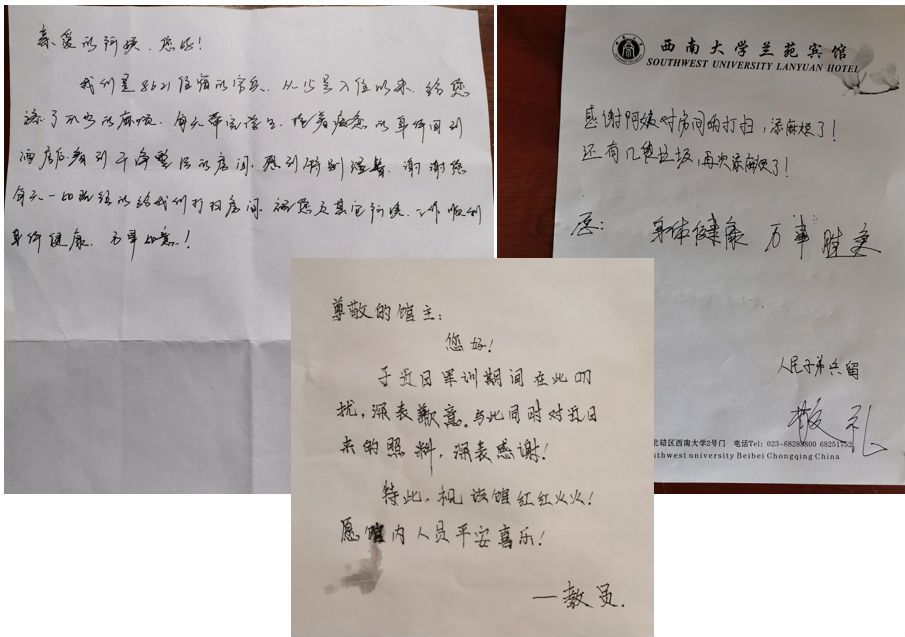 亲爱的阿姨、您好！
我们是8621住宿的官兵、从15号入住以来、给您
添了不少的麻烦、每天带完学生、拖着疲惫的身体回到
酒店后看到干净整洁的房间、感到特别温馨、谢谢您
每天一如既往的给我们打扫房间、祝您及其它阿姨、工作顺利
身体健康、万事如意！
西南大学兰苑宾馆
SOUTHWEST UNIVERSITY LANYUAN HOTEL
感谢阿姨对房间的打扫，添麻烦了！
还有几袋垃圾，再次添麻烦了！
愿：身体健康 万事胜意
人民子弟兵留
敬礼
北碚区西南大学2号门 电话Tel：023-68283800 68251752
uthwest university Beibei Chongqing China
尊敬的馆主：
您好！
于近日军训期间在此叨
扰，深表歉意。与此同时对近日
来的照料，深表感谢！
特此，祝该馆红红火火！
愿馆内人员平安喜乐！
一教员.